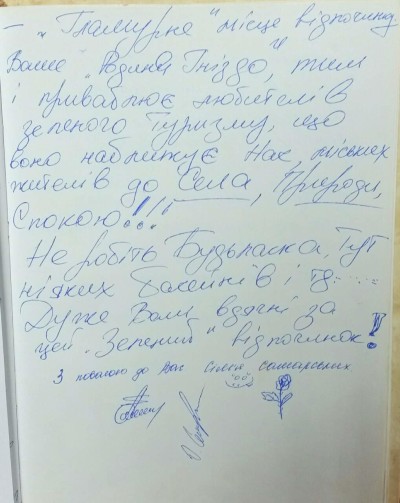 – „Гламурне" місце відпочинку
Ваше „Родинне Гніздо", тим
і приваблює любителів
зеленого Туризму, що
воно наближує Нас, міських
жителів до Села, Природи,
Спокою!!!
Не робіть Будьласка, Тут
ніяких басейнів і тд.....
Дуже Вам вдячні за
цей „Зелений" відпочинок!
З повагою до Вас Сімя